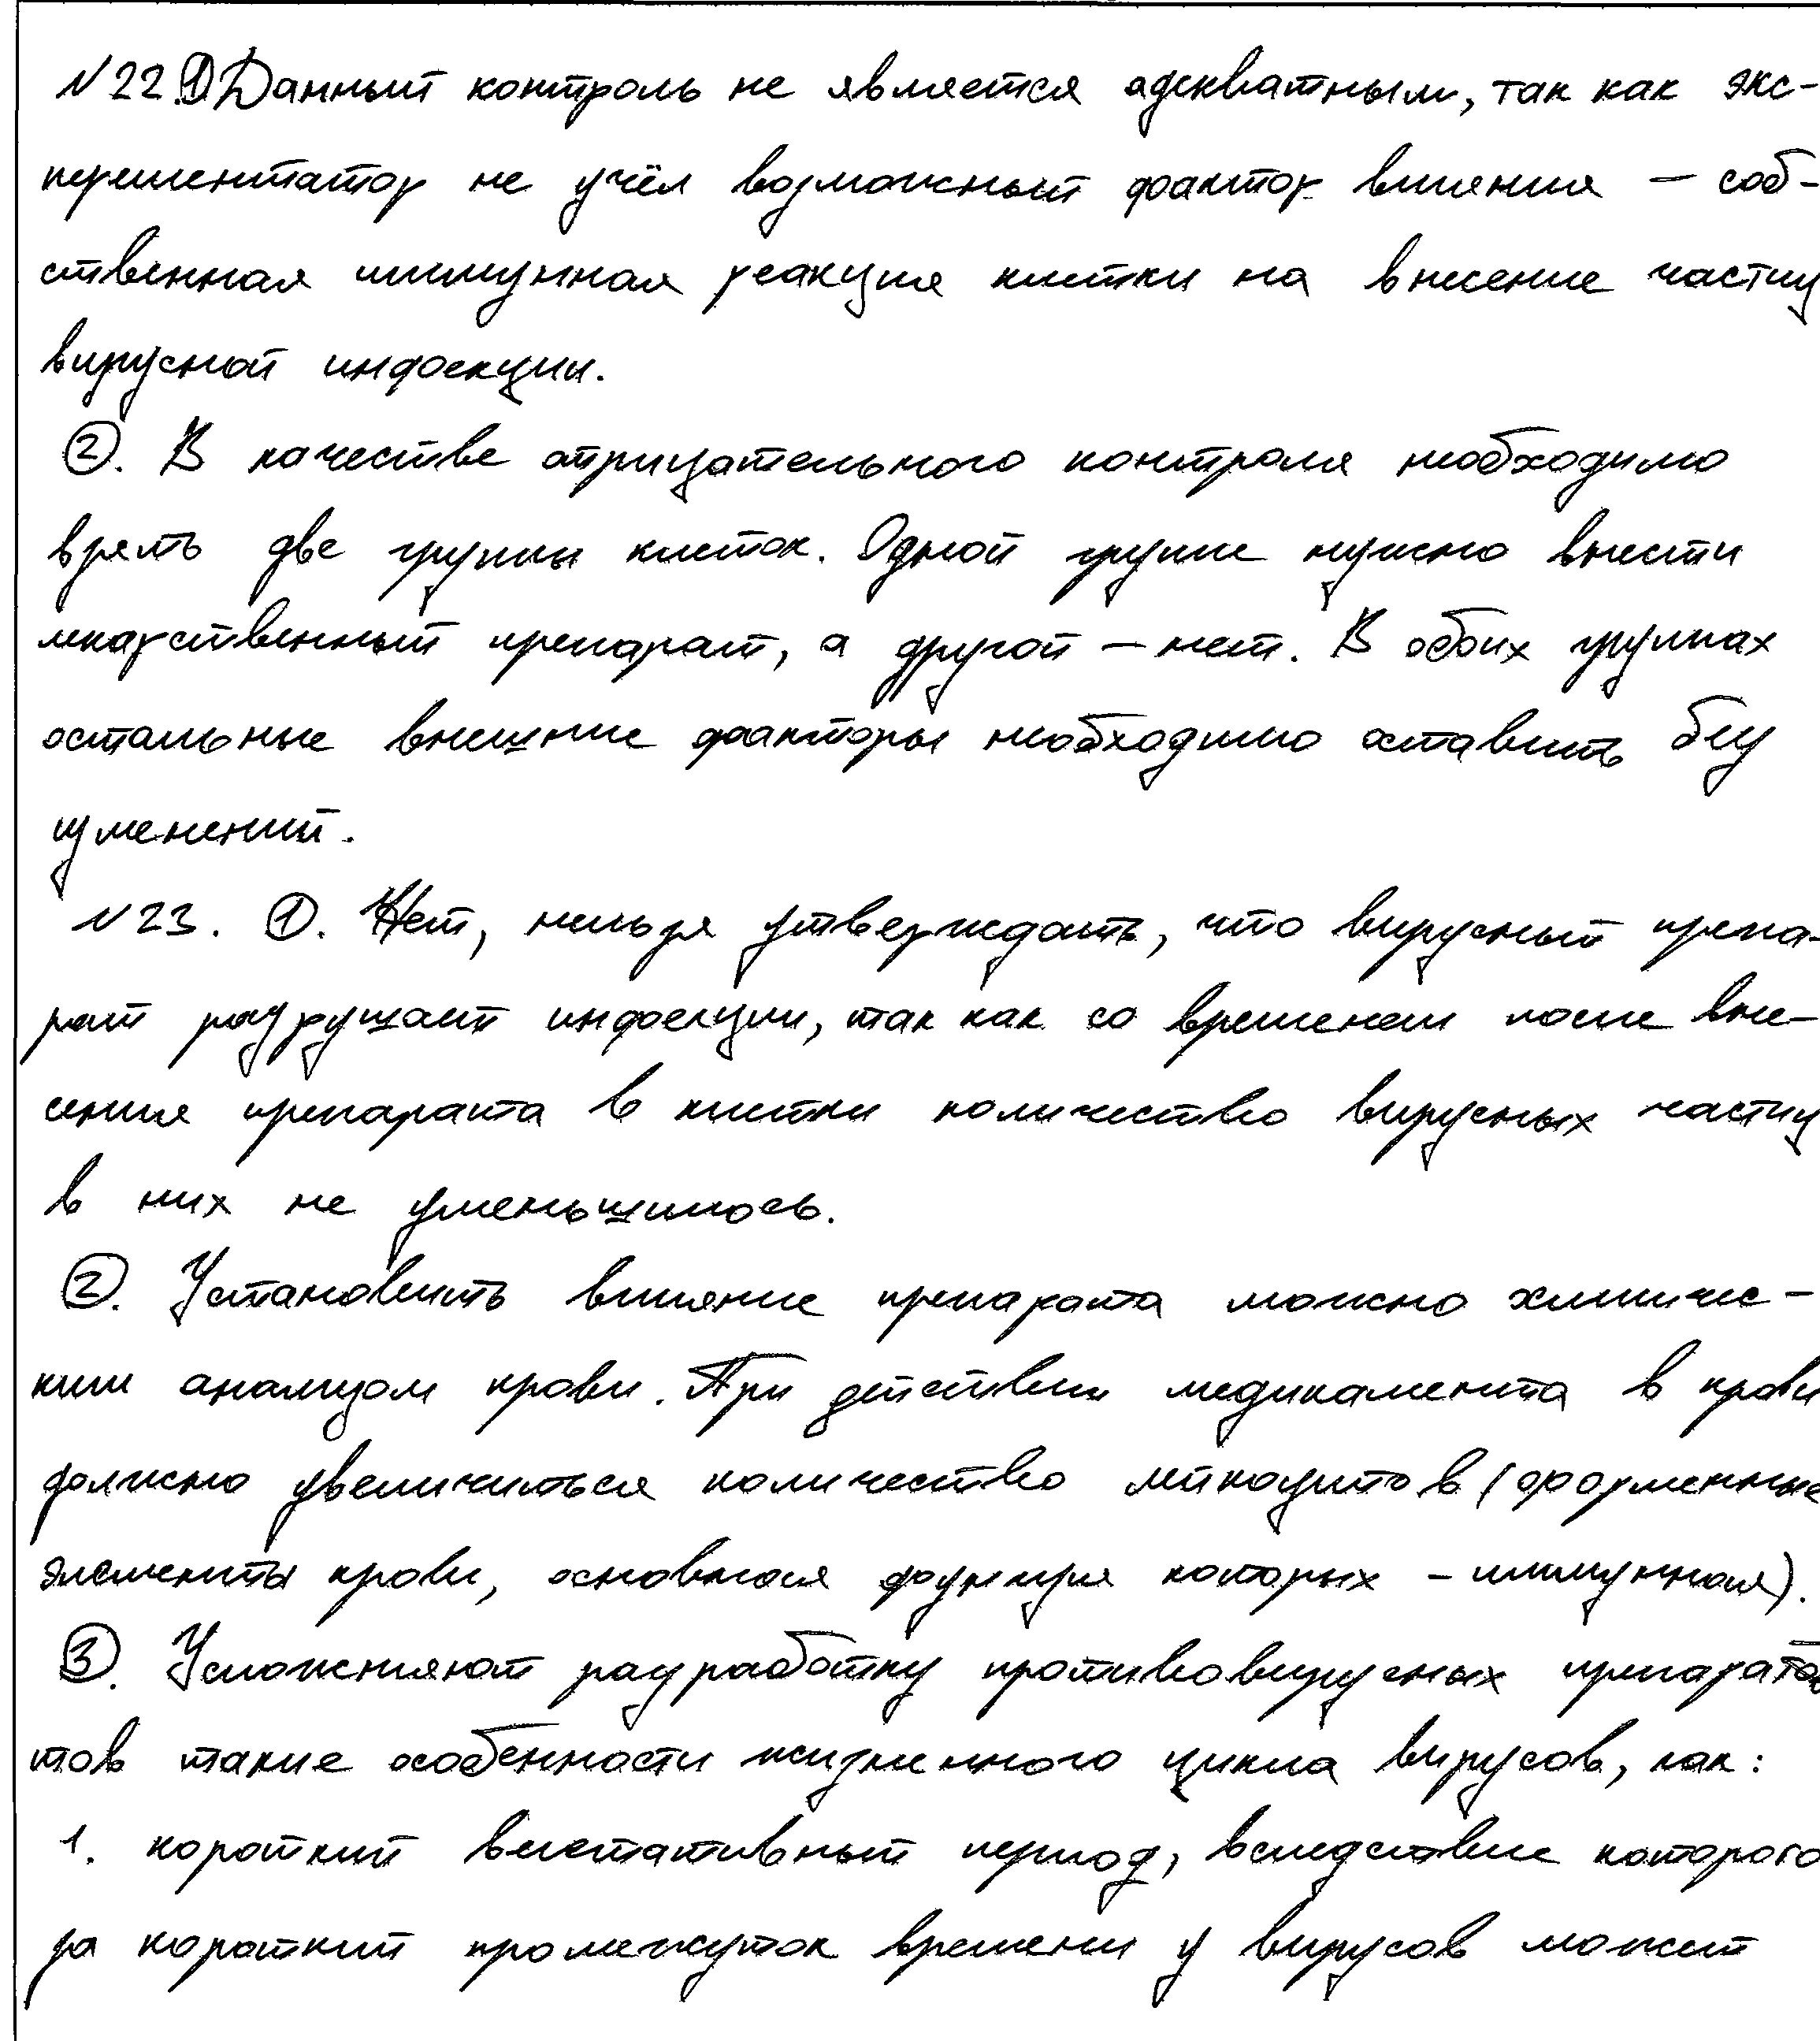 №22 ① Данный контроль не является адекватным, так как экс-
периментатор не учёл возможный фактор влияния – соб-
ственная иммунная реакция клетки на внесение частиц
вирусной инфекции.
②. В качестве отрицательного контроля необходимо
взять две группы клеток. Одной группе нужно внести
лекарственный препарат, а другой – нет. В обоих группах
остальные внешние факторы необходимо оставить без
изменений.
№23. ①. Нет, нельзя утверждать, что вирусный препа-
рат разрушает инфекции, так как со временем после вне-
сения препарата в клетки количество вирусных частиц
в них не уменьшилось.
②. Установить влияние препарата можно химичес-
ким анализом крови. При действии медикамента в крови
должно увеличиться количество лейкоцитов (форменные
элементы крови, основная функция которых – иммунная).
③. Усложняют разработку противовирусных препарато
тов такие особенности жизненного цикла вирусов, как:
1. короткий вегетативный период, вследствие которого
за короткий промежуток времени у вирусов может